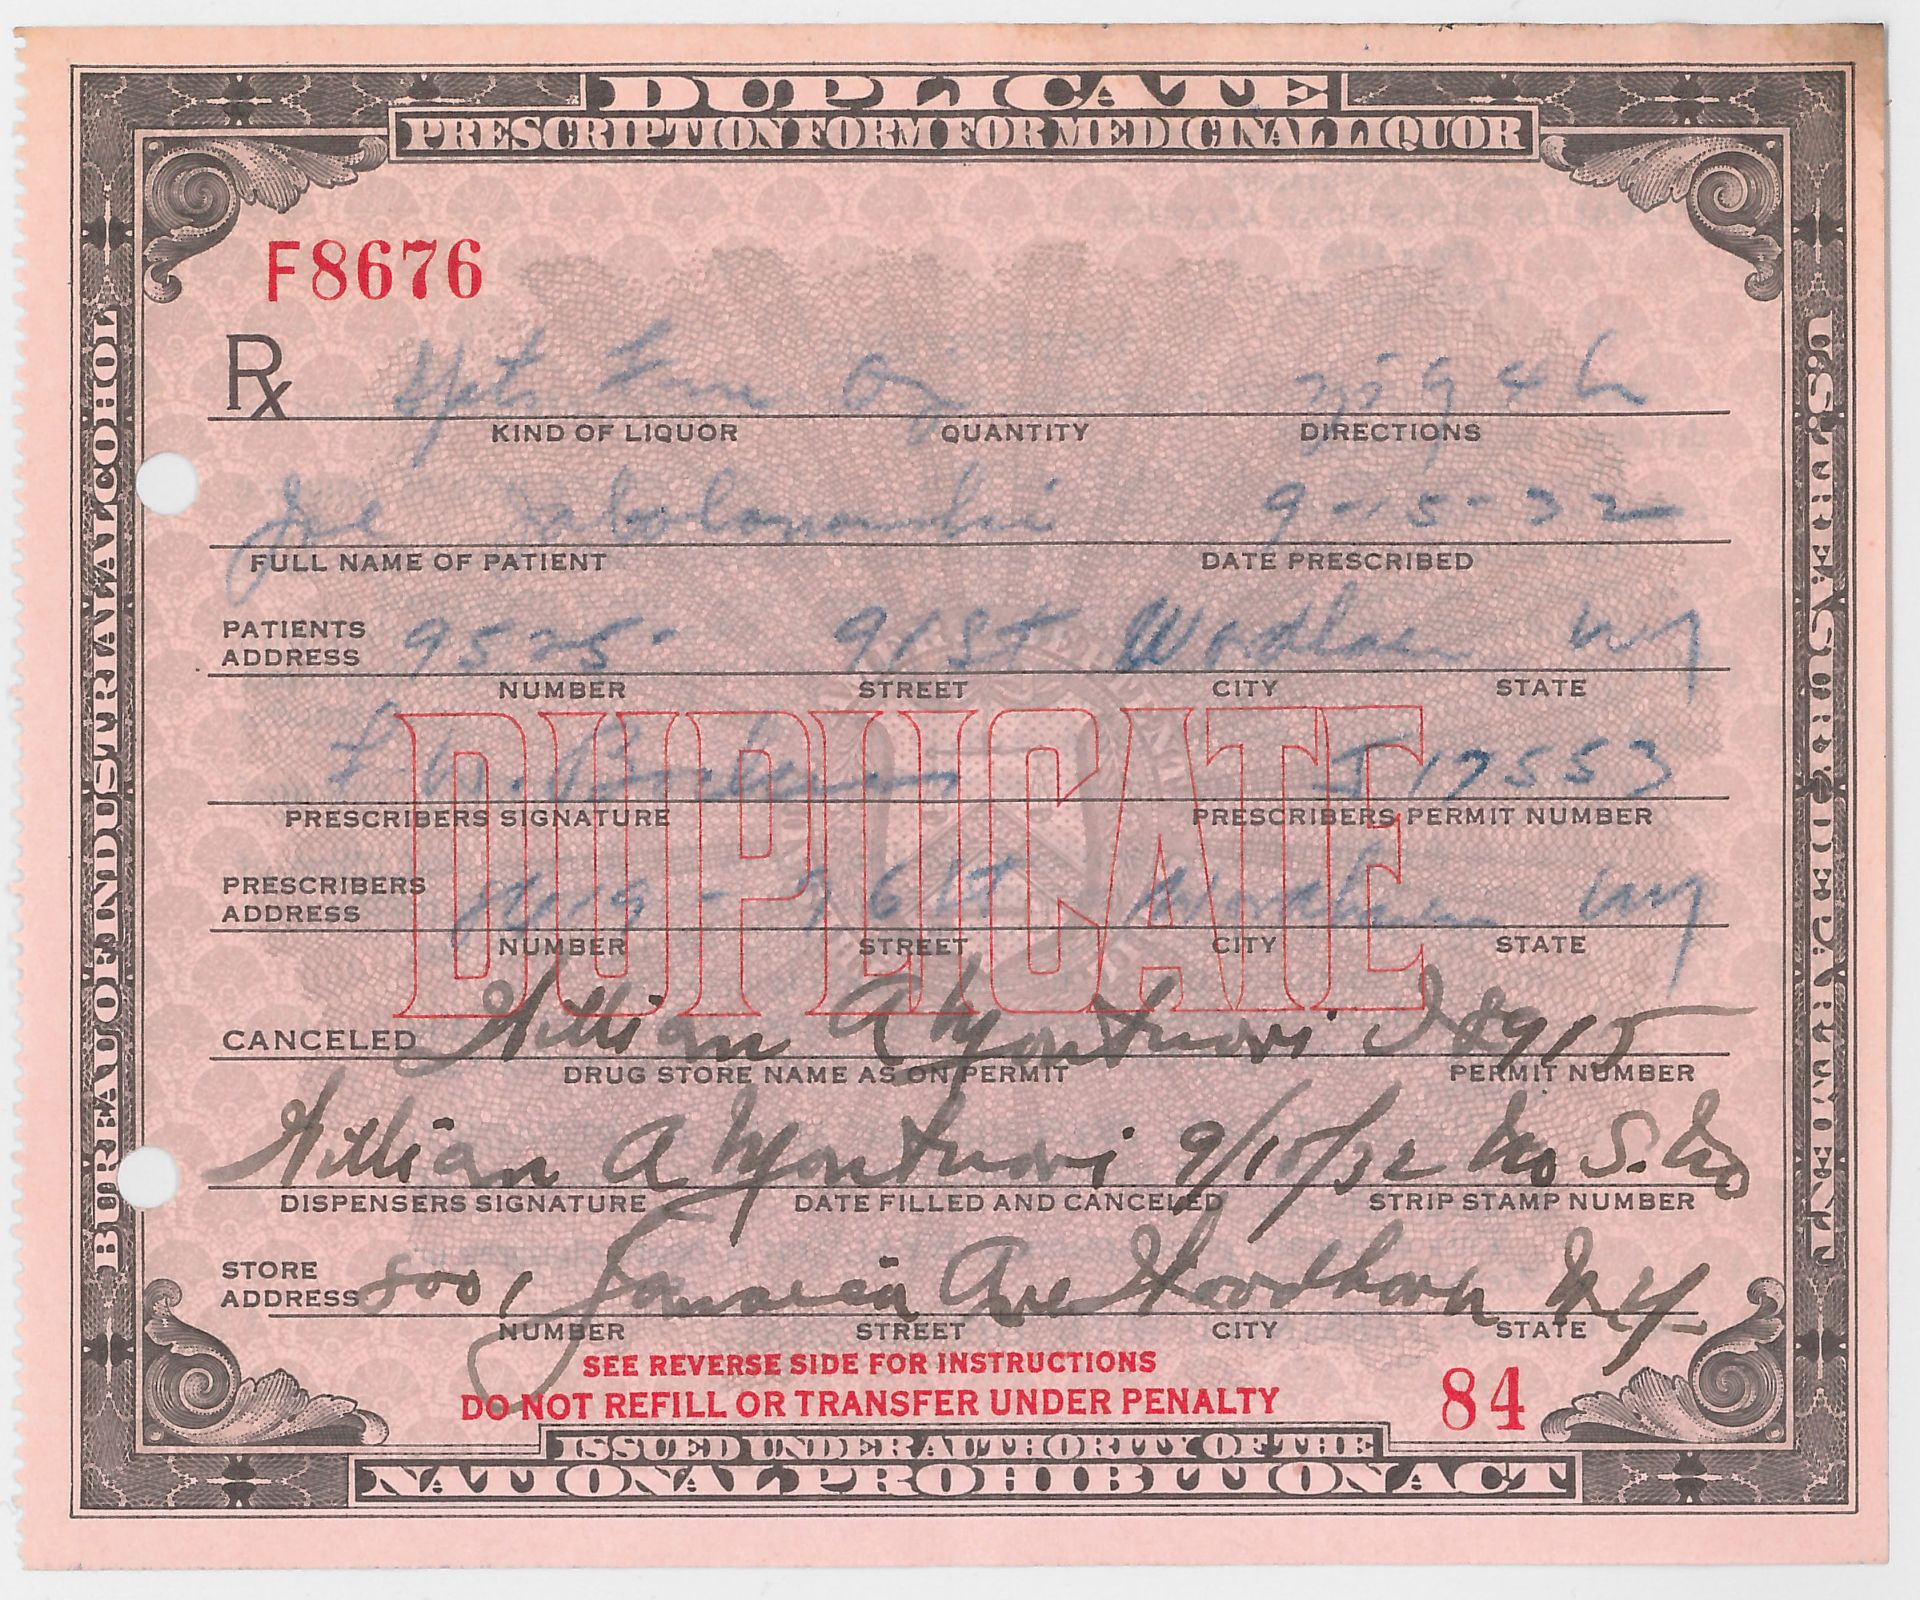 DUPLICATE
PRESCRIPTION FORM FOR MEDICINAL LIQUOR
BUREAU OF INDUSTRIAL ALCOHOL
U.S. TREASURY DEPARTMENT
F8676
Rx
KIND OF LIQUOR QUANTITY DIRECTIONS
Joe 9-15-32
FULL NAME OF PATIENT DATE PRESCRIBED
PATIENTS ADDRESS 9525 91 St NY
NUMBER STREET CITY STATE
DUPLICATE
17553
PRESCRIBERS SIGNATURE PRESCRIBERS PERMIT NUMBER
PRESCRIBERS ADDRESS St NY
NUMBER STREET CITY STATE
CANCELED William A 8915
DRUG STORE NAME AS ON PERMIT PERMIT NUMBER
William A 9/15/32 No S. No
DISPENSERS SIGNATURE DATE FILLED AND CANCELED STRIP STAMP NUMBER
STORE ADDRESS 8001 Jamaica Ave Woodhaven N.Y.
NUMBER STREET CITY STATE
SEE REVERSE SIDE FOR INSTRUCTIONS
DO NOT REFILL OR TRANSFER UNDER PENALTY
84
ISSUED UNDER AUTHORITY OF THE
NATIONAL PROHIBITION ACT